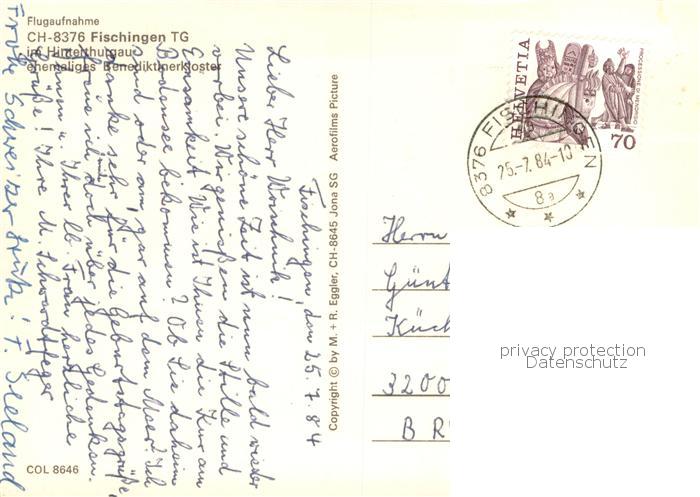 Flugaufnahme
CH-8376 Fischingen TG
im Hinterthurgau
ehemaliges Benediktinerkloster
Fischingen, den 25.7.84
Lieber Herr
Unsere schöne Zeit ist nun bald wieder
vorbei. Wir genießen die Stille und
Einsamkeit. Wie ist Ihnen die Kur am
Bodensee bekommen? Ob Sie daheim
sind oder am, gar auf dem Meer? Ich
danke sehr für die Geburtstagsgrüße,
freue ich mich doch über jedes Gedenken.
Ihnen u. Ihrer lb. Frau herzliche
Grüße! Ihre M. Schwerdtfeger
Frohe Schweizer Grüße! T. Seeland
COL 8646
Copyright © by M. + R. Eggler, CH-8645 Jona SG Aerofilms Picture
HELVETIA
PROCESSIONE DI MENDRISIO
70
8376 FISCHINGEN
25.-7.84-10
8a
Herrn
Günt
Küch
3200
BR
privacy protection
Datenschutz